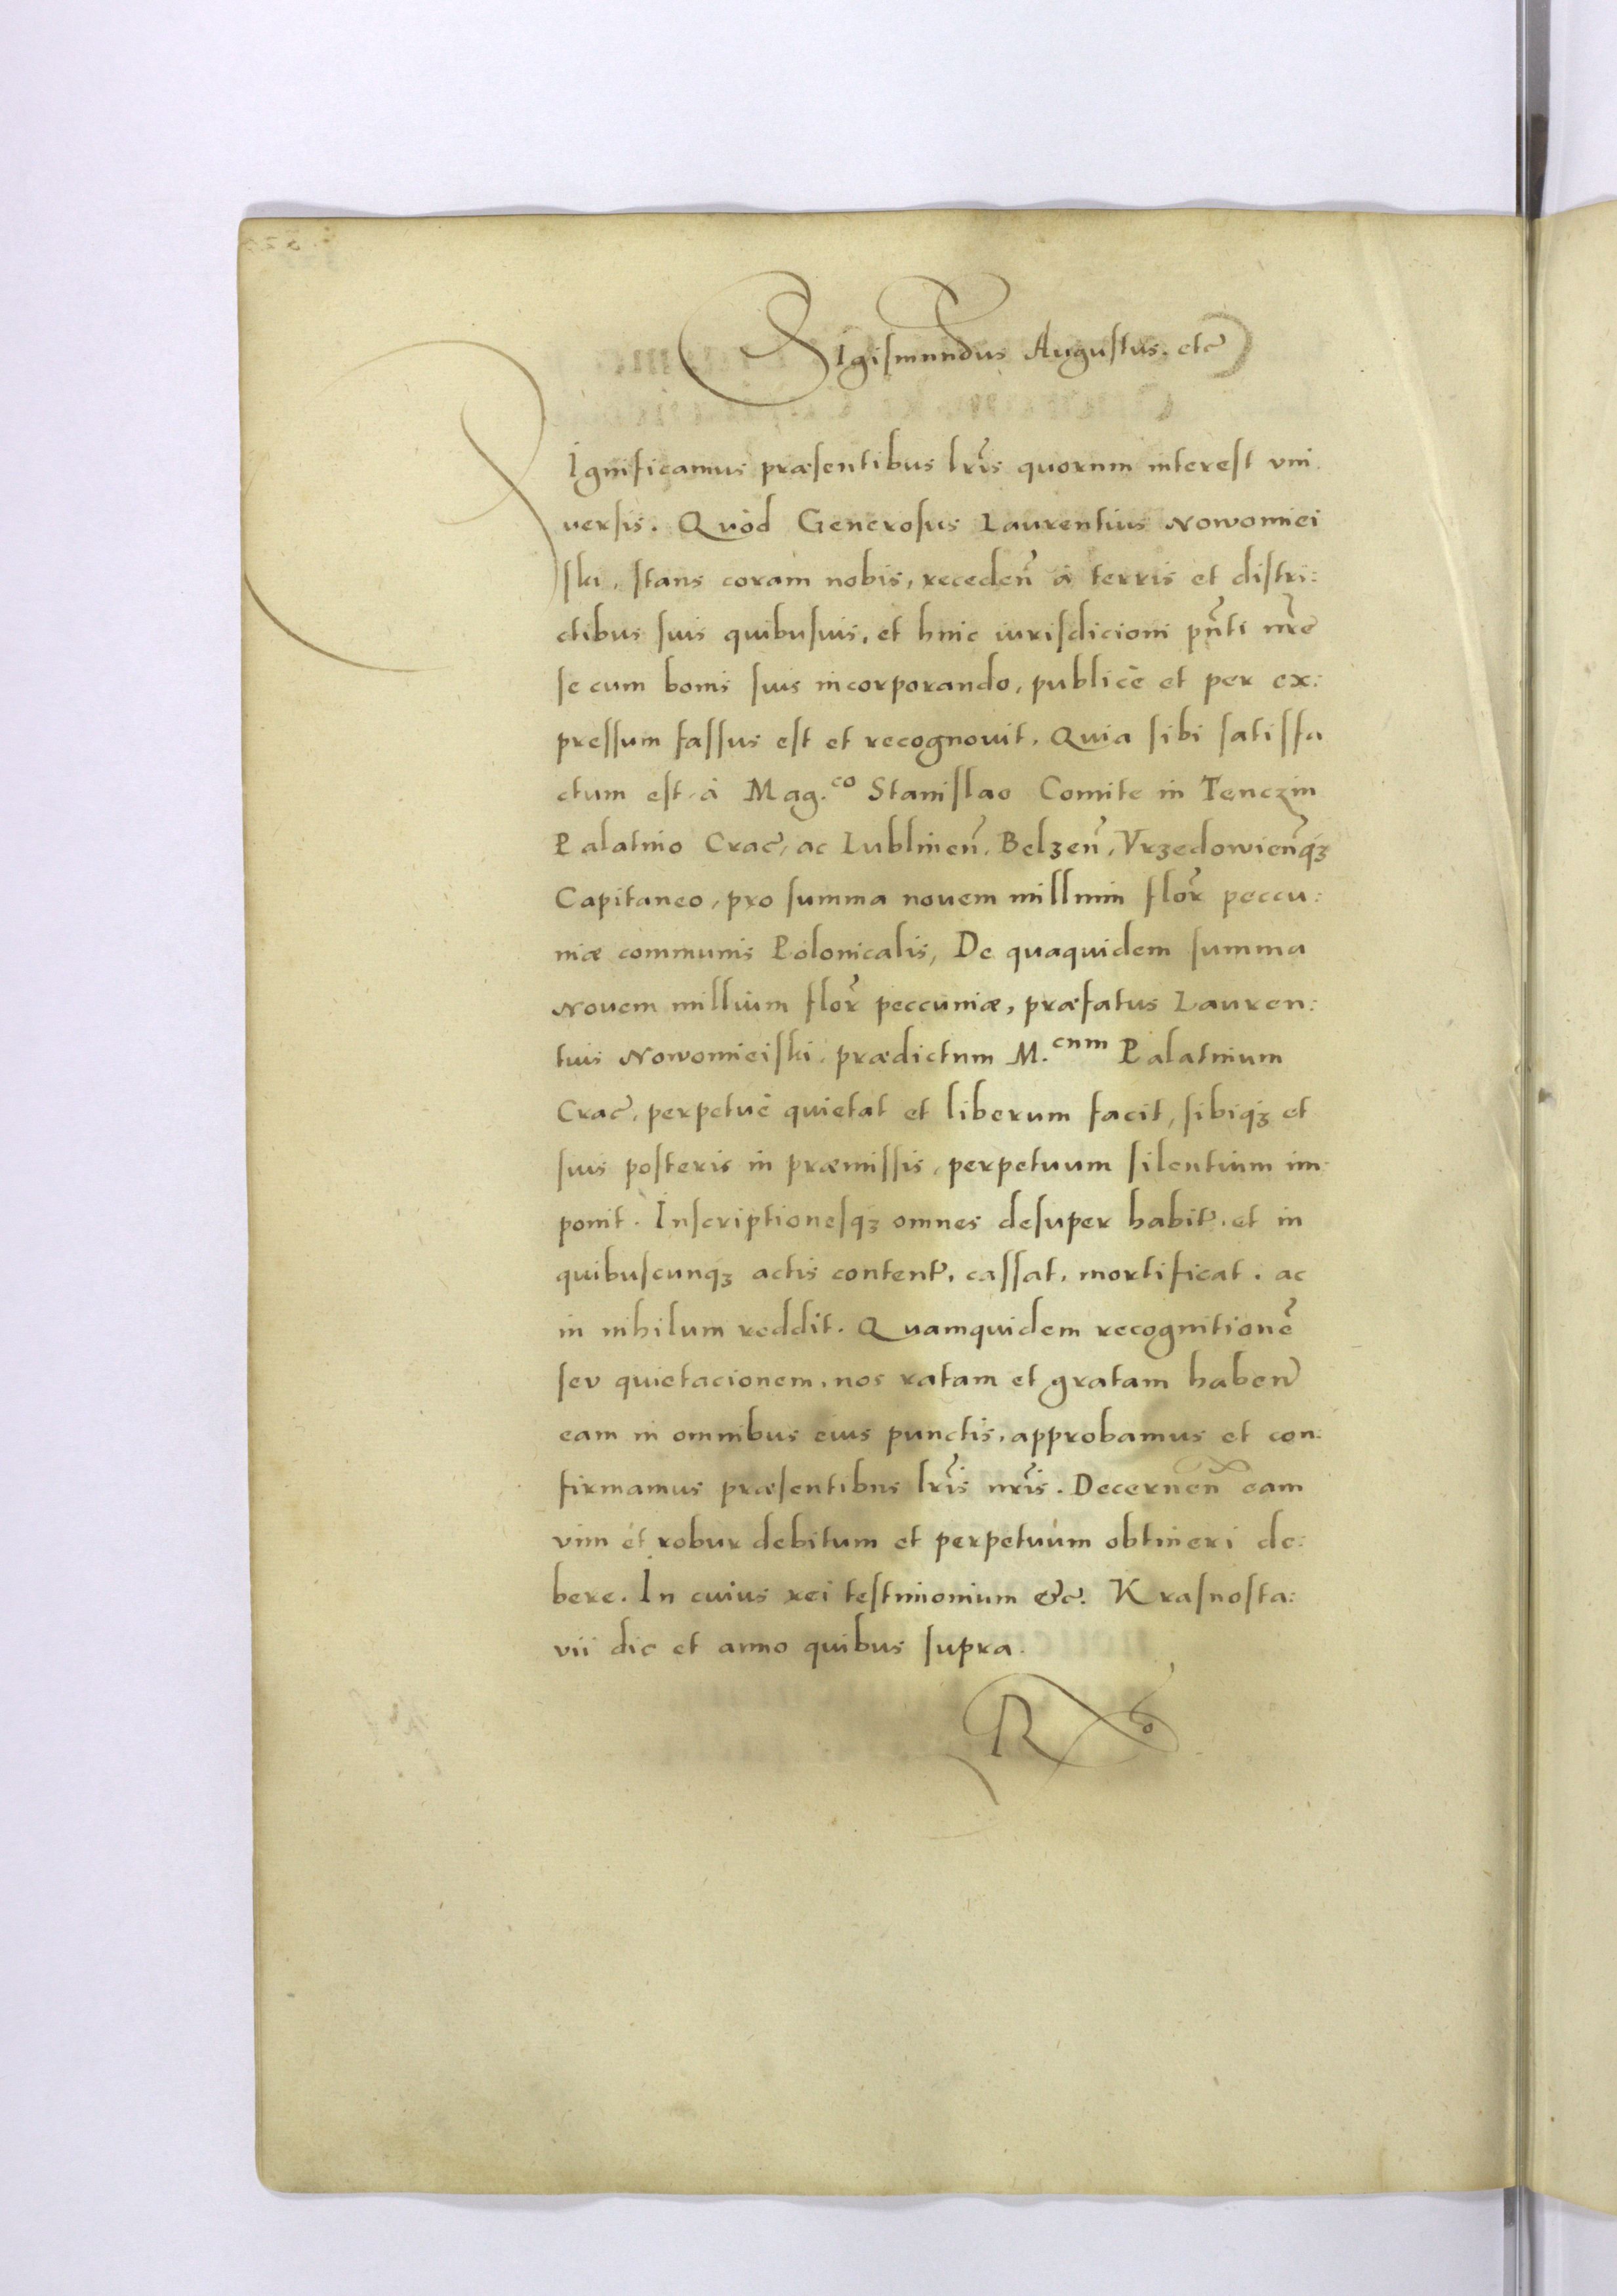 Sigismundus Augustus. etc̃
Significamus præsentibus lr̃is quorum interest vni
uersis. Quòd Generosus Laurentius Nowomiei
ski, stans coram nobis, receden̄ à terris et distri:
ctibus suis quibusuis, et huic iurisdicioni pn̄ti nr̃e
se cum bonis suis incorporando, publicè et per ex:
pressum fassus est et recognouit. Quia sibi satisfa
ctum est à Mag.co Stanislao Comite in Tenczin
Palatino Crac̃, ac Lublinen̄. Belzen̄, Vrzedowien̄q3
Capitaneo, pro summa nouem millium flor̃ peccu:
niæ communis Polonicalis, De quaquidem summa
Nouem millium flor̃ peccuniæ, præfatus Lauren:
tius Nowomieiski, prædictum M.cum Palatinum
Crac̃, perpetuè quietat et liberum facit, sibiq3 et
suis posteris in præmissis, perpetuum silentium im:
ponit. Inscriptionesq3 omnes desuper habit̃. et in
quibuscunq3 actis content̃, cassat, mortificat. ac
in nihilum reddit. Quamquidem recognitionē
seu quietacionem, nos ratam et gratam haben̄
eam in omnibus eius punctis, approbamus et con:
firmamus præsentibus lr̃is nr̃is. Decernen̄ eam
vim et robur debitum et perpetuum obtineri de:
bere. In cuius rei testimonium &c. Krasnosta:
vii die et anno quibus supra.
R